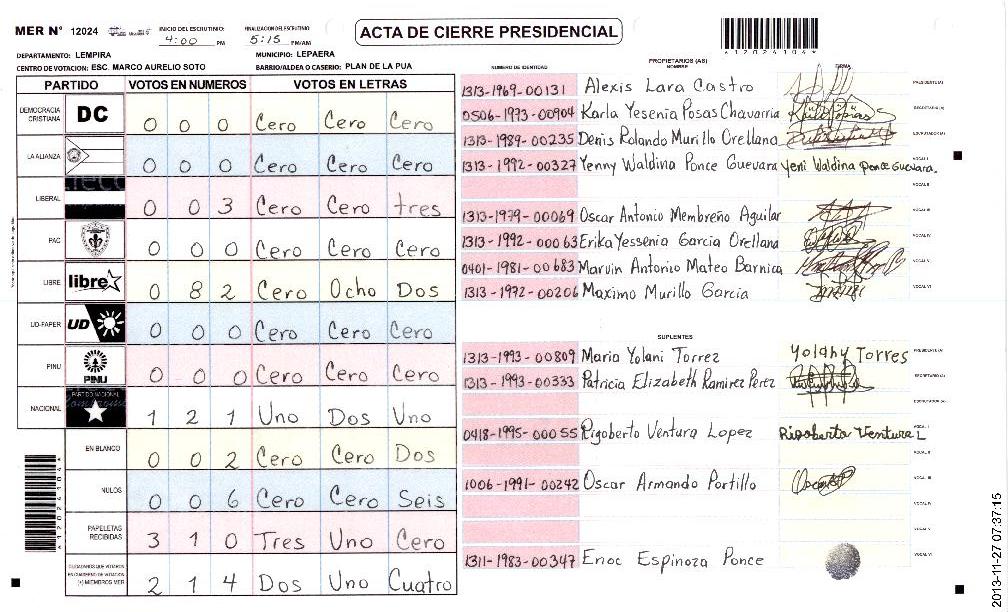 MER N° 12024
INICIO DEL ESCRUTINIO: 4:00 PM
FINALIZACION DEL ESCRUTINIO 5:15 PM/AM
ACTA DE CIERRE PRESIDENCIAL
*12024104*
DEPARTAMENTO: LEMPIRA
MUNICIPIO: LEPAERA
CENTRO DE VOTACION: ESC. MARCO AURELIO SOTO
BARRIO/ALDEA O CASERIO: PLAN DE LA PUA
PARTIDO VOTOS EN NUMEROS VOTOS EN LETRAS
DEMOCRACIA CRISTIANA DC 0 0 0 Cero Cero Cero
LA ALIANZA 0 0 0 Cero Cero Cero
LIBERAL 0 0 3 Cero Cero tres
PAC 0 0 0 Cero Cero Cero
LIBRE libre 0 8 2 Cero Ocho Dos
UD-FAPER UD 0 0 0 Cero Cero Cero
PINU PINU 0 0 0 Cero Cero Cero
NACIONAL PARTIDO NACIONAL 1 2 1 Uno Dos Uno
EN BLANCO 0 0 2 Cero Cero Dos
NULOS 0 0 6 Cero Cero Seis
PAPELETAS RECIBIDAS 3 1 0 Tres Uno Cero
CIUDADANOS QUE VOTARON EN CUADERNO DE VOTACION (+) MIEMBROS MER 2 1 4 Dos Uno Cuatro
*12024104*
PROPIETARIOS (AS)
NUMERO DE IDENTIDAD NOMBRE FIRMA
1313-1969-00131 Alexis Lara Castro PRESIDENTE (A)
0506-1973-00904 Karla Yesenia Posas Chavarria SECRETARIO (A)
1313-1989-00235 Denis Rolando Murillo Orellana ESCRUTADOR (A)
1313-1992-00327 Yenny Waldina Ponce Guevara Yeni Waldina Ponce Guevara. VOCAL I
VOCAL II
1313-1979-00069 Oscar Antonio Membreño Aguilar VOCAL III
1313-1992-00063 Erika Yessenia Garcia Orellana VOCAL IV
0401-1981-00683 Marvin Antonio Mateo Barnica VOCAL V
1313-1972-00206 Maximo Murillo Garcia VOCAL VI
SUPLENTES
1313-1993-00809 Maria Yolani Torrez Yolany Torres PRESIDENTE (A)
1313-1993-00333 Patricia Elizabeth Ramirez Perez SECRETARIO (A)
ESCRUTADOR (A)
0418-1995-00055 Rigoberto Ventura Lopez Rigoberto Ventura L VOCAL I
VOCAL II
1006-1991-00242 Oscar Armando Portillo VOCAL III
VOCAL IV
VOCAL V
1311-1983-00347 Enoc Espinoza Ponce VOCAL VI
2013-11-27 07:37:15